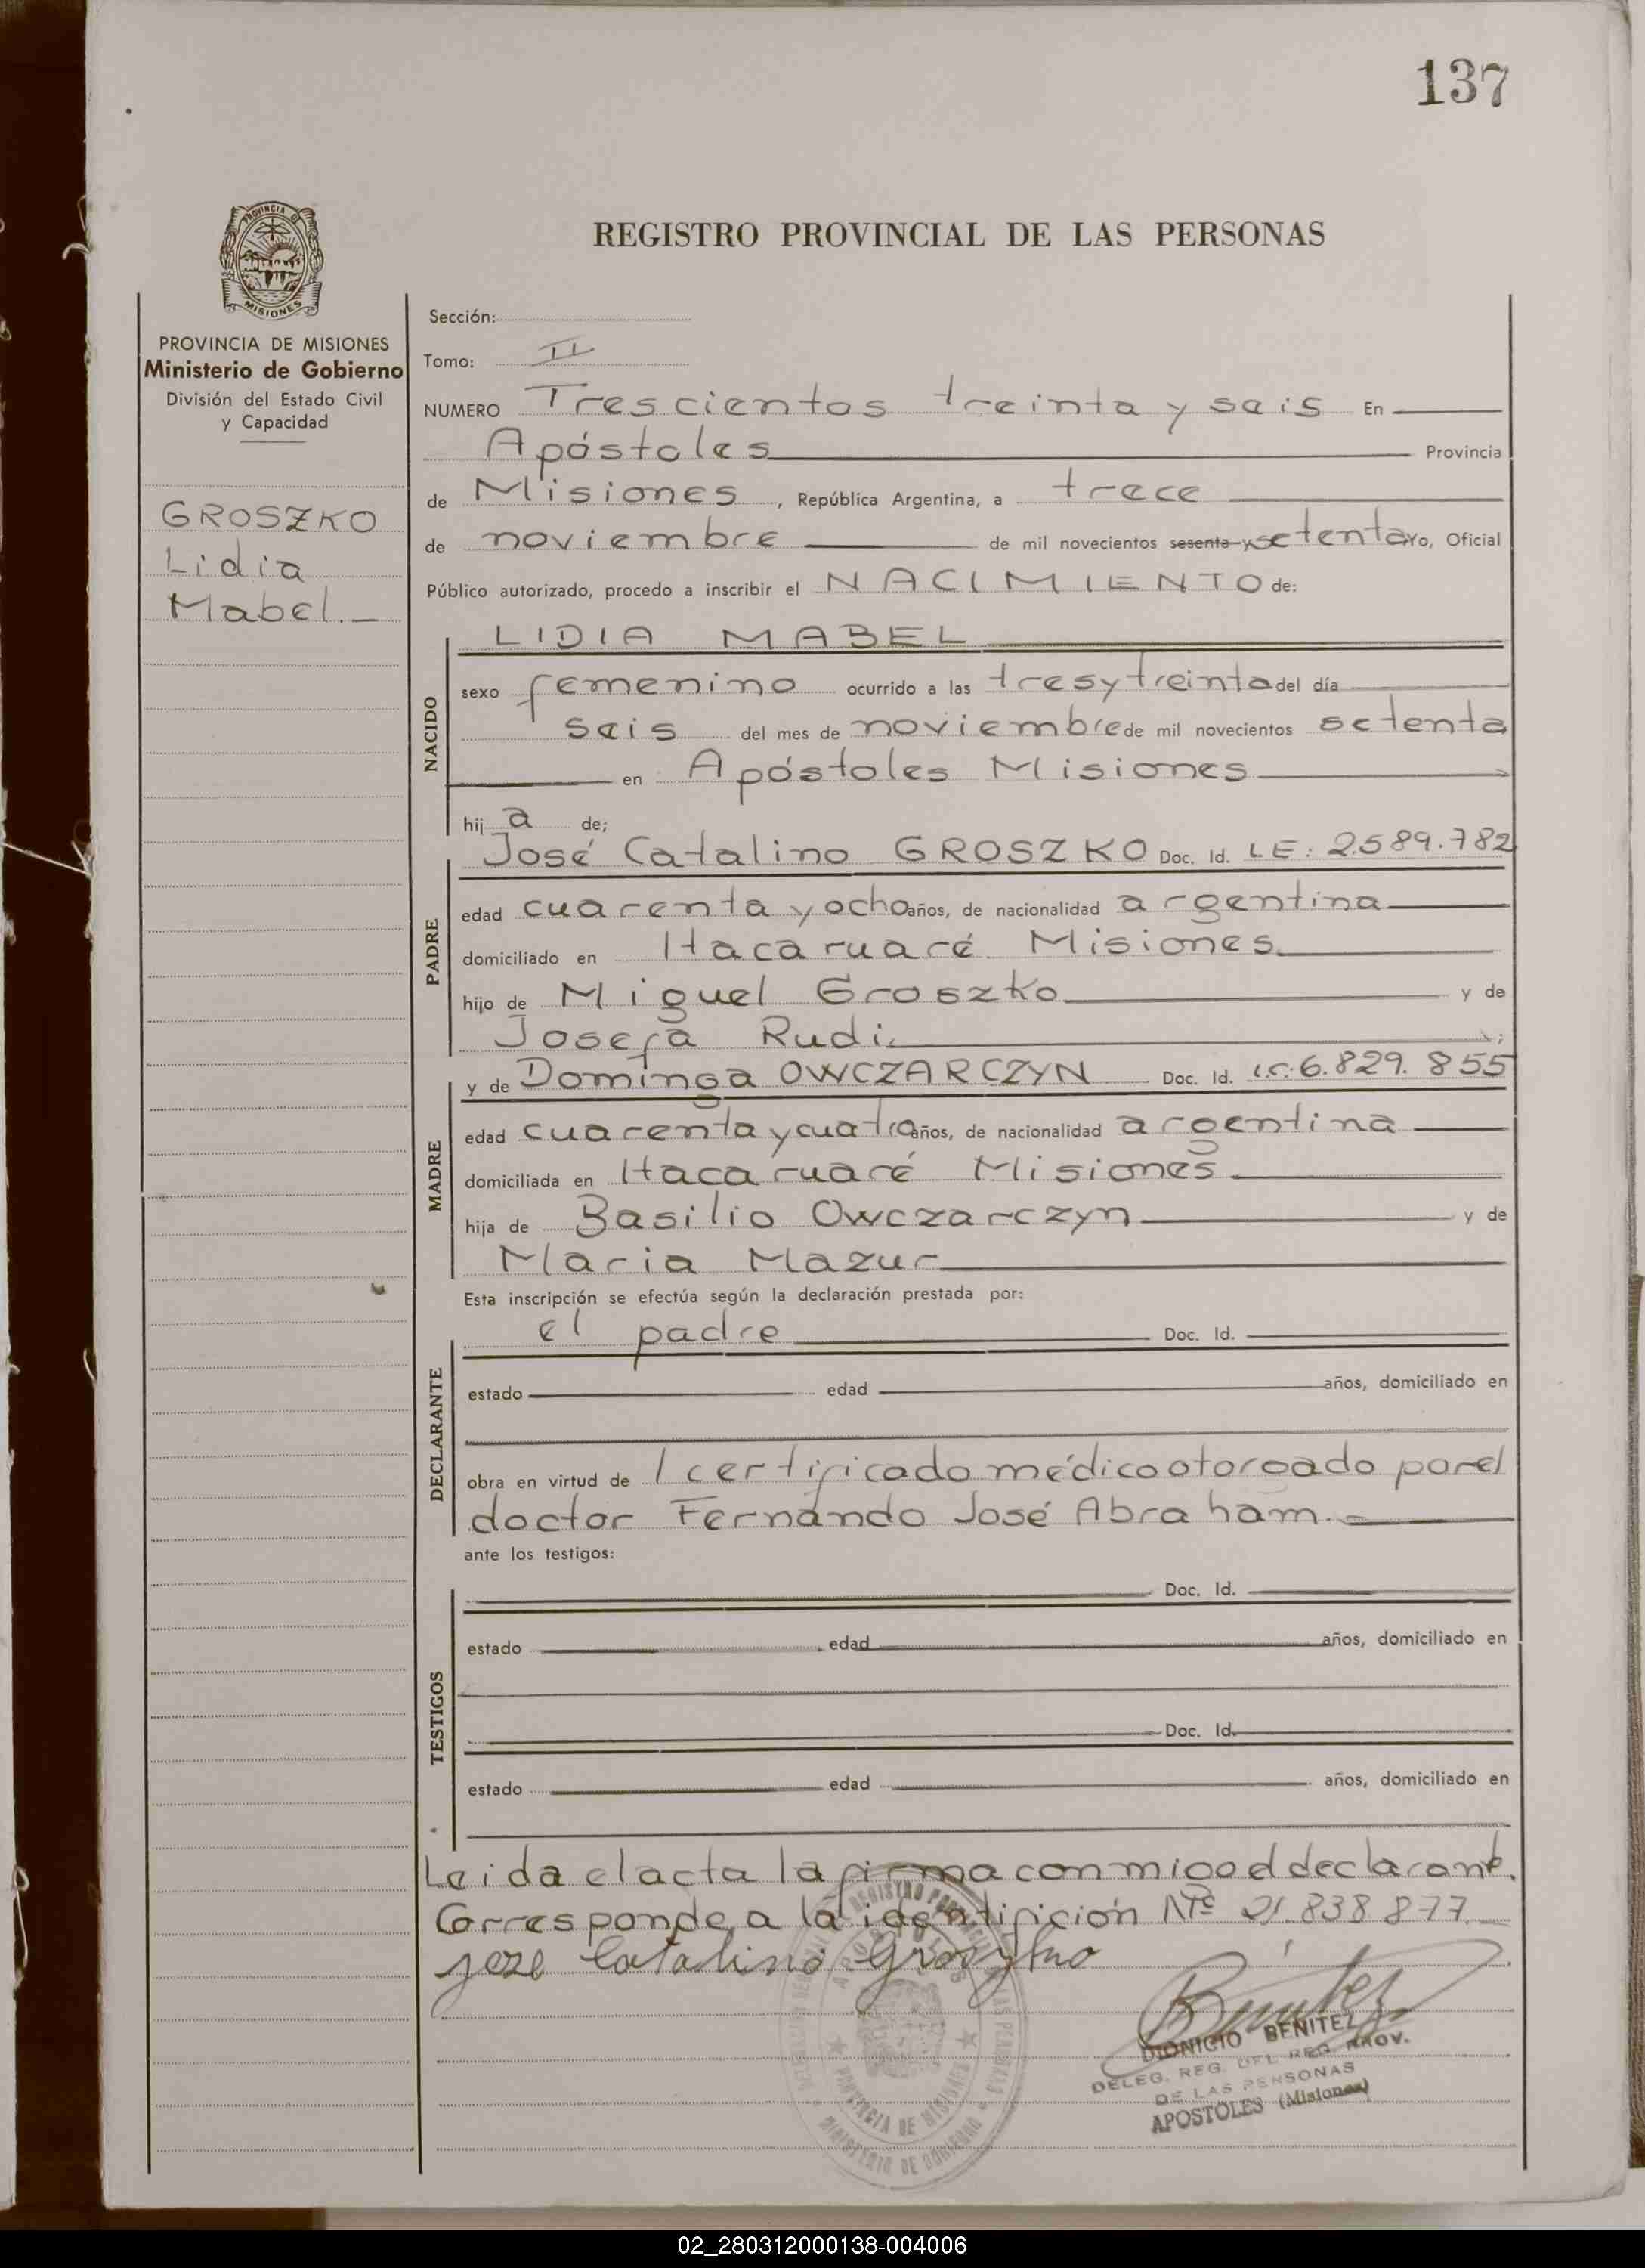 137
PROVINCIA DE
MISIONES
REGISTRO PROVINCIAL DE LAS PERSONAS
PROVINCIA DE MISIONES
Ministerio de Gobierno
División del Estado Civil
y Capacidad
GROSZKO
Lidia
Mabel.
Sección:
Tomo: II
NUMERO Trescientos treinta y seis En
Apóstoles Provincia
de Misiones, República Argentina, a trece
de noviembre de mil novecientos sesenta y setenta yo, Oficial
Público autorizado, procedo a inscribir el NACIMIENTO de:
NACIDO
LIDIA MABEL
sexo femenino ocurrido a las tres y treinta del día
seis del mes de noviembre de mil novecientos setenta
en Apóstoles Misiones
hij a de;
PADRE
José Catalino GROSZKO Doc. Id. LE: 2.589.782
edad cuarenta y ocho años, de nacionalidad argentina
domiciliado en Itacaruaré Misiones
hijo de Miguel Groszko y de
Josefa Rudi ;
MADRE
y de Dominga OWCZARCZYN Doc. Id. L.C: 6.829.855
edad cuarenta y cuatro años, de nacionalidad argentina
domiciliada en Itacaruaré Misiones
hija de Basilio Owczarczyn y de
Maria Mazur
Esta inscripción se efectúa según la declaración prestada por:
DECLARANTE
el padre Doc. Id.
estado edad años, domiciliado en
obra en virtud de 1 certificado médico otorgado por el
doctor Fernándo José Abraham.
ante los testigos:
TESTIGOS
Doc. Id.
estado edad años, domiciliado en
Doc. Id.
estado edad años, domiciliado en
Leida el acta la firma conmigo el declarante.
Corresponde a la identifición Nº 21.838.877
jose Catalino Groszko
Benitez
DIONICIO BENITEZ
DELEG. REG. DEL REG. PROV.
DE LAS PERSONAS
APOSTOLES (Misiones)
PROVINCIA DE MISIONES
MINISTERIO DE GOBIERNO
02_280312000138-004006